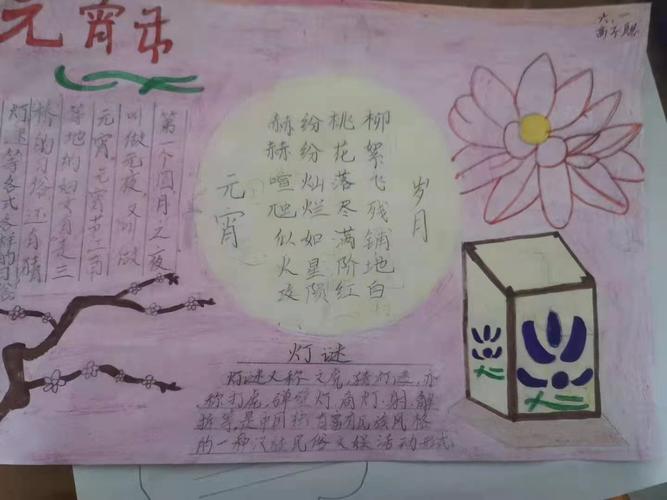 元宵节
六、一
第一个圆月之夜
叫做元夜,又叫做
元宵,元宵节江南
等地的妇女有走三
桥的习俗还有猜
灯迷等各式各样的习
岁月
柳絮飞残铺地白
桃花落尽满阶红
纷纷灿烂如星陨
赫赫喧虺似火攻
元宵
灯谜
灯谜又称文虎,猜灯谜,亦
称打虎,弹壁灯,商灯,射,解
拆等,是中国独有富有民族风格
的一种汉族民俗文娱活动形式.